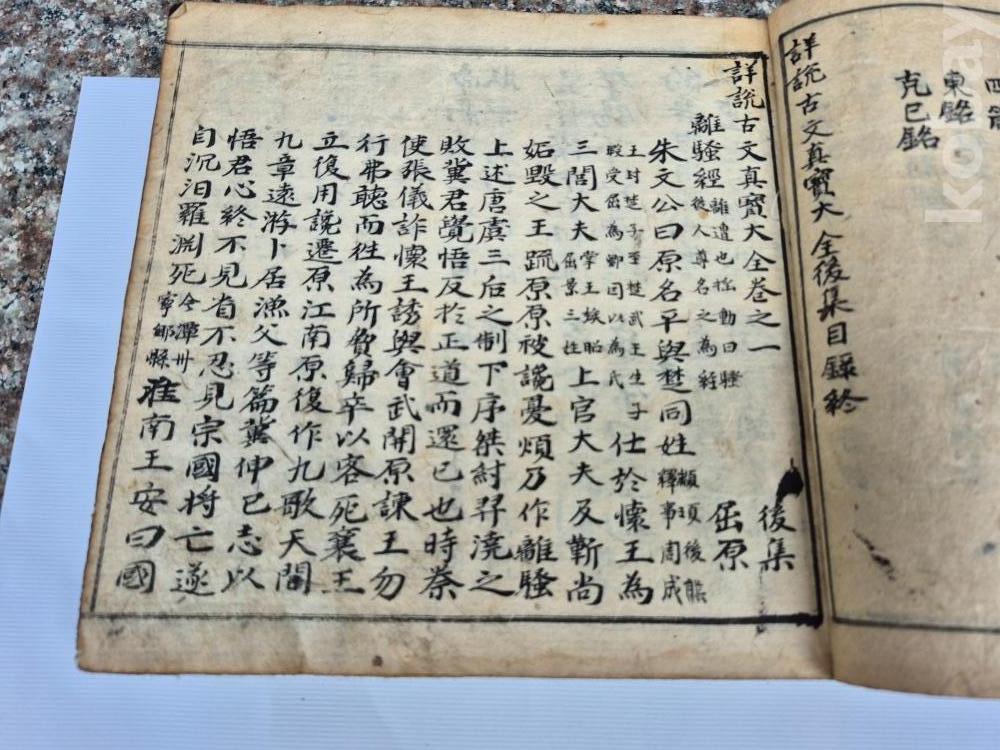 東銘
克己銘
詳說古文真寶大全後集目錄終
詳說古文真寶大全卷之一 後集
離騷經 離遭也搔動曰騷後人尊名之為經 屈原
朱文公曰原名平與楚同姓 顓頊後熊釋事周成
王封楚子至楚武王生子瑕受屈為卿因以為氏 仕於懷王為
三閭大夫 掌王族昭屈景三姓 上官大夫及靳尚
妬毀之王䟽原原被讒憂煩乃作離騷
上述唐虞三后之制下序桀紂羿澆之
敗冀君覺悟反於正道而還己也時秦
使張儀詐懷王誘與會武開原諫王勿
行弗聽而徃為所脅歸卒以客死襄王
立復用讒遷原江南原復作九歌天問
九章遠游卜居漁父等篇冀伸己志以
悟君心終不見省不忍見宗國將亡遂
自沉汨羅淵死 今潭州寧鄉縣 淮南王安曰國